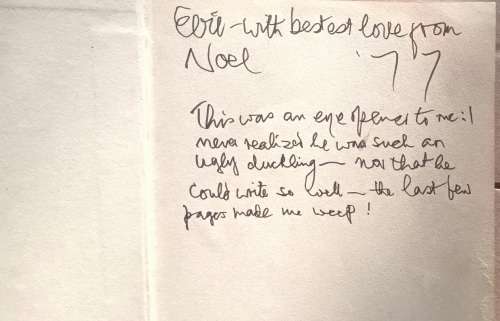 Evie - with bestest love from
Noel '77
This was an eye opener to me: I
never realized he was such an
ugly duckling — nor that he
could write so well — the last few
pages made me weep!